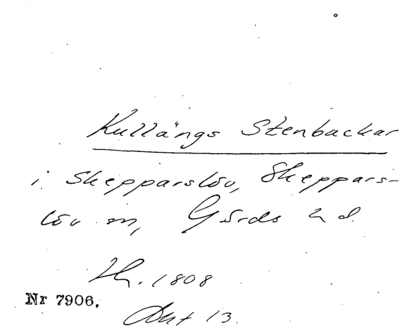 Kullängs Stenbackar
i Skepparslöv, Skeppars-
löv sn, Gärds hd.
Lh. 1808
Nr 7906.
Akt 13